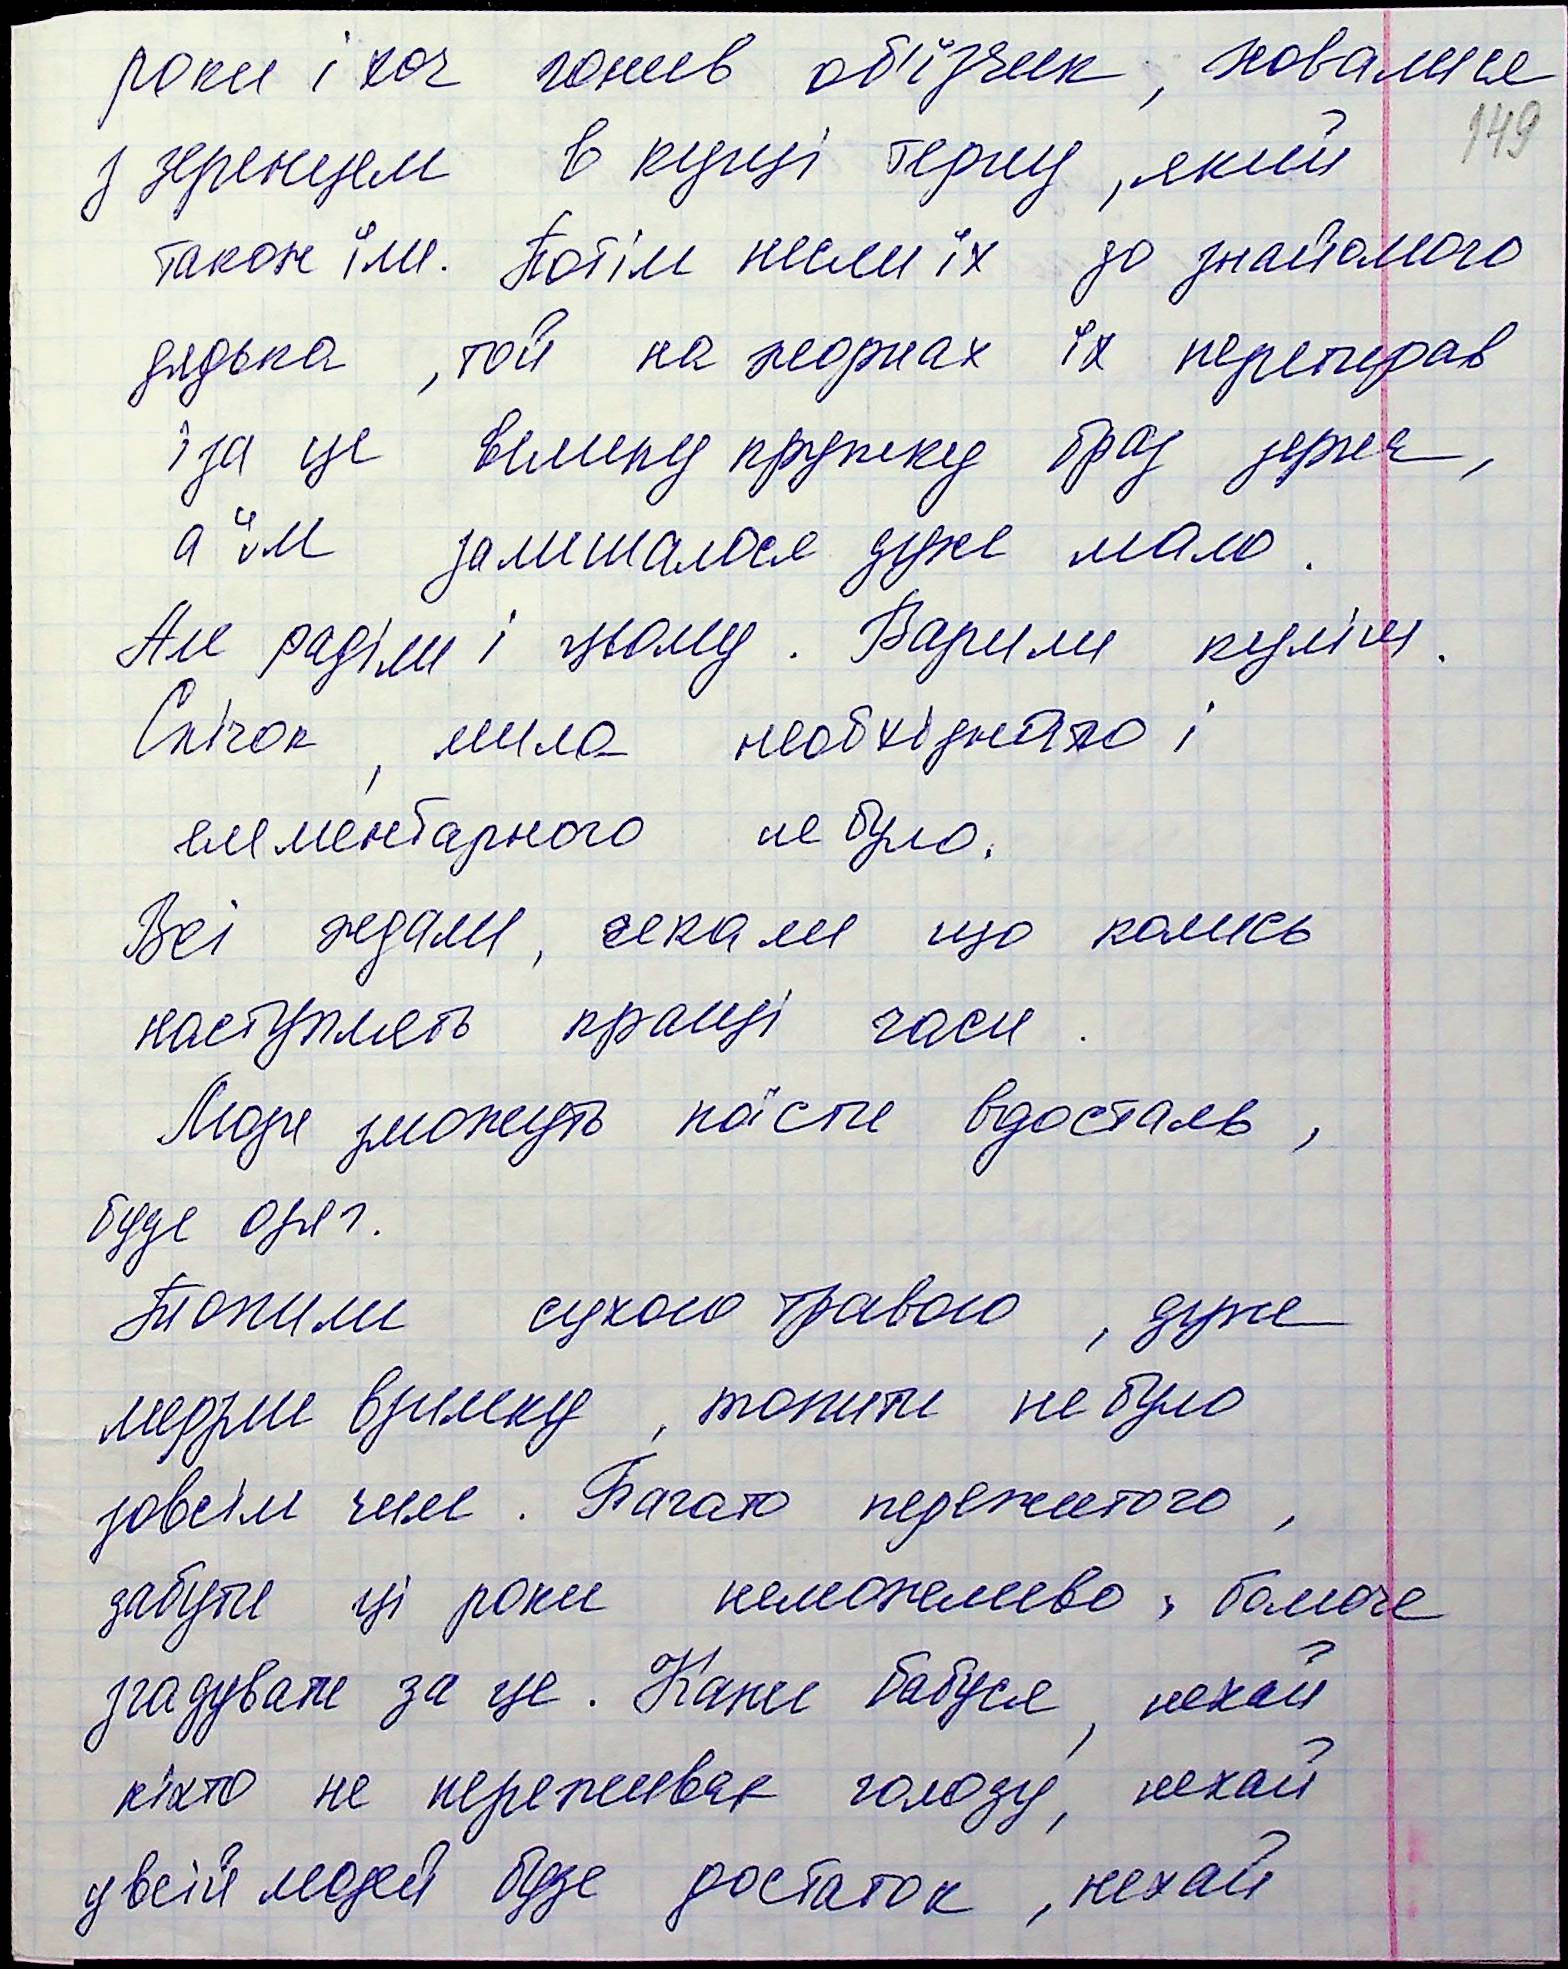 роки і хоч гонив об'їзчик, ховалися
149
з зеренцем в кущі терну, який
також їли. Потім несли їх до знайомого
дядька, той на жорнах їх перетирав
і за це велику кружку брав зерня,
а їм залишалося дуже мало.
Але раділи і цьому. Варили куліш.
Спічок, мила необхідного і
елементарного не було.
Всі ждали, чекали що колись
наступлять кращі часи.
Люди зможуть поїсти вдосталь,
буде одяг.
Топили сухою травою, дуже
мерзли взимку, топити не було
зовсім чим. Багато пережитого,
забути ці роки неможливо, боляче
згадувати за це. Каже бабуся, нехай
ніхто не переживає голоду, нехай
у всій людей буде достаток, нехай